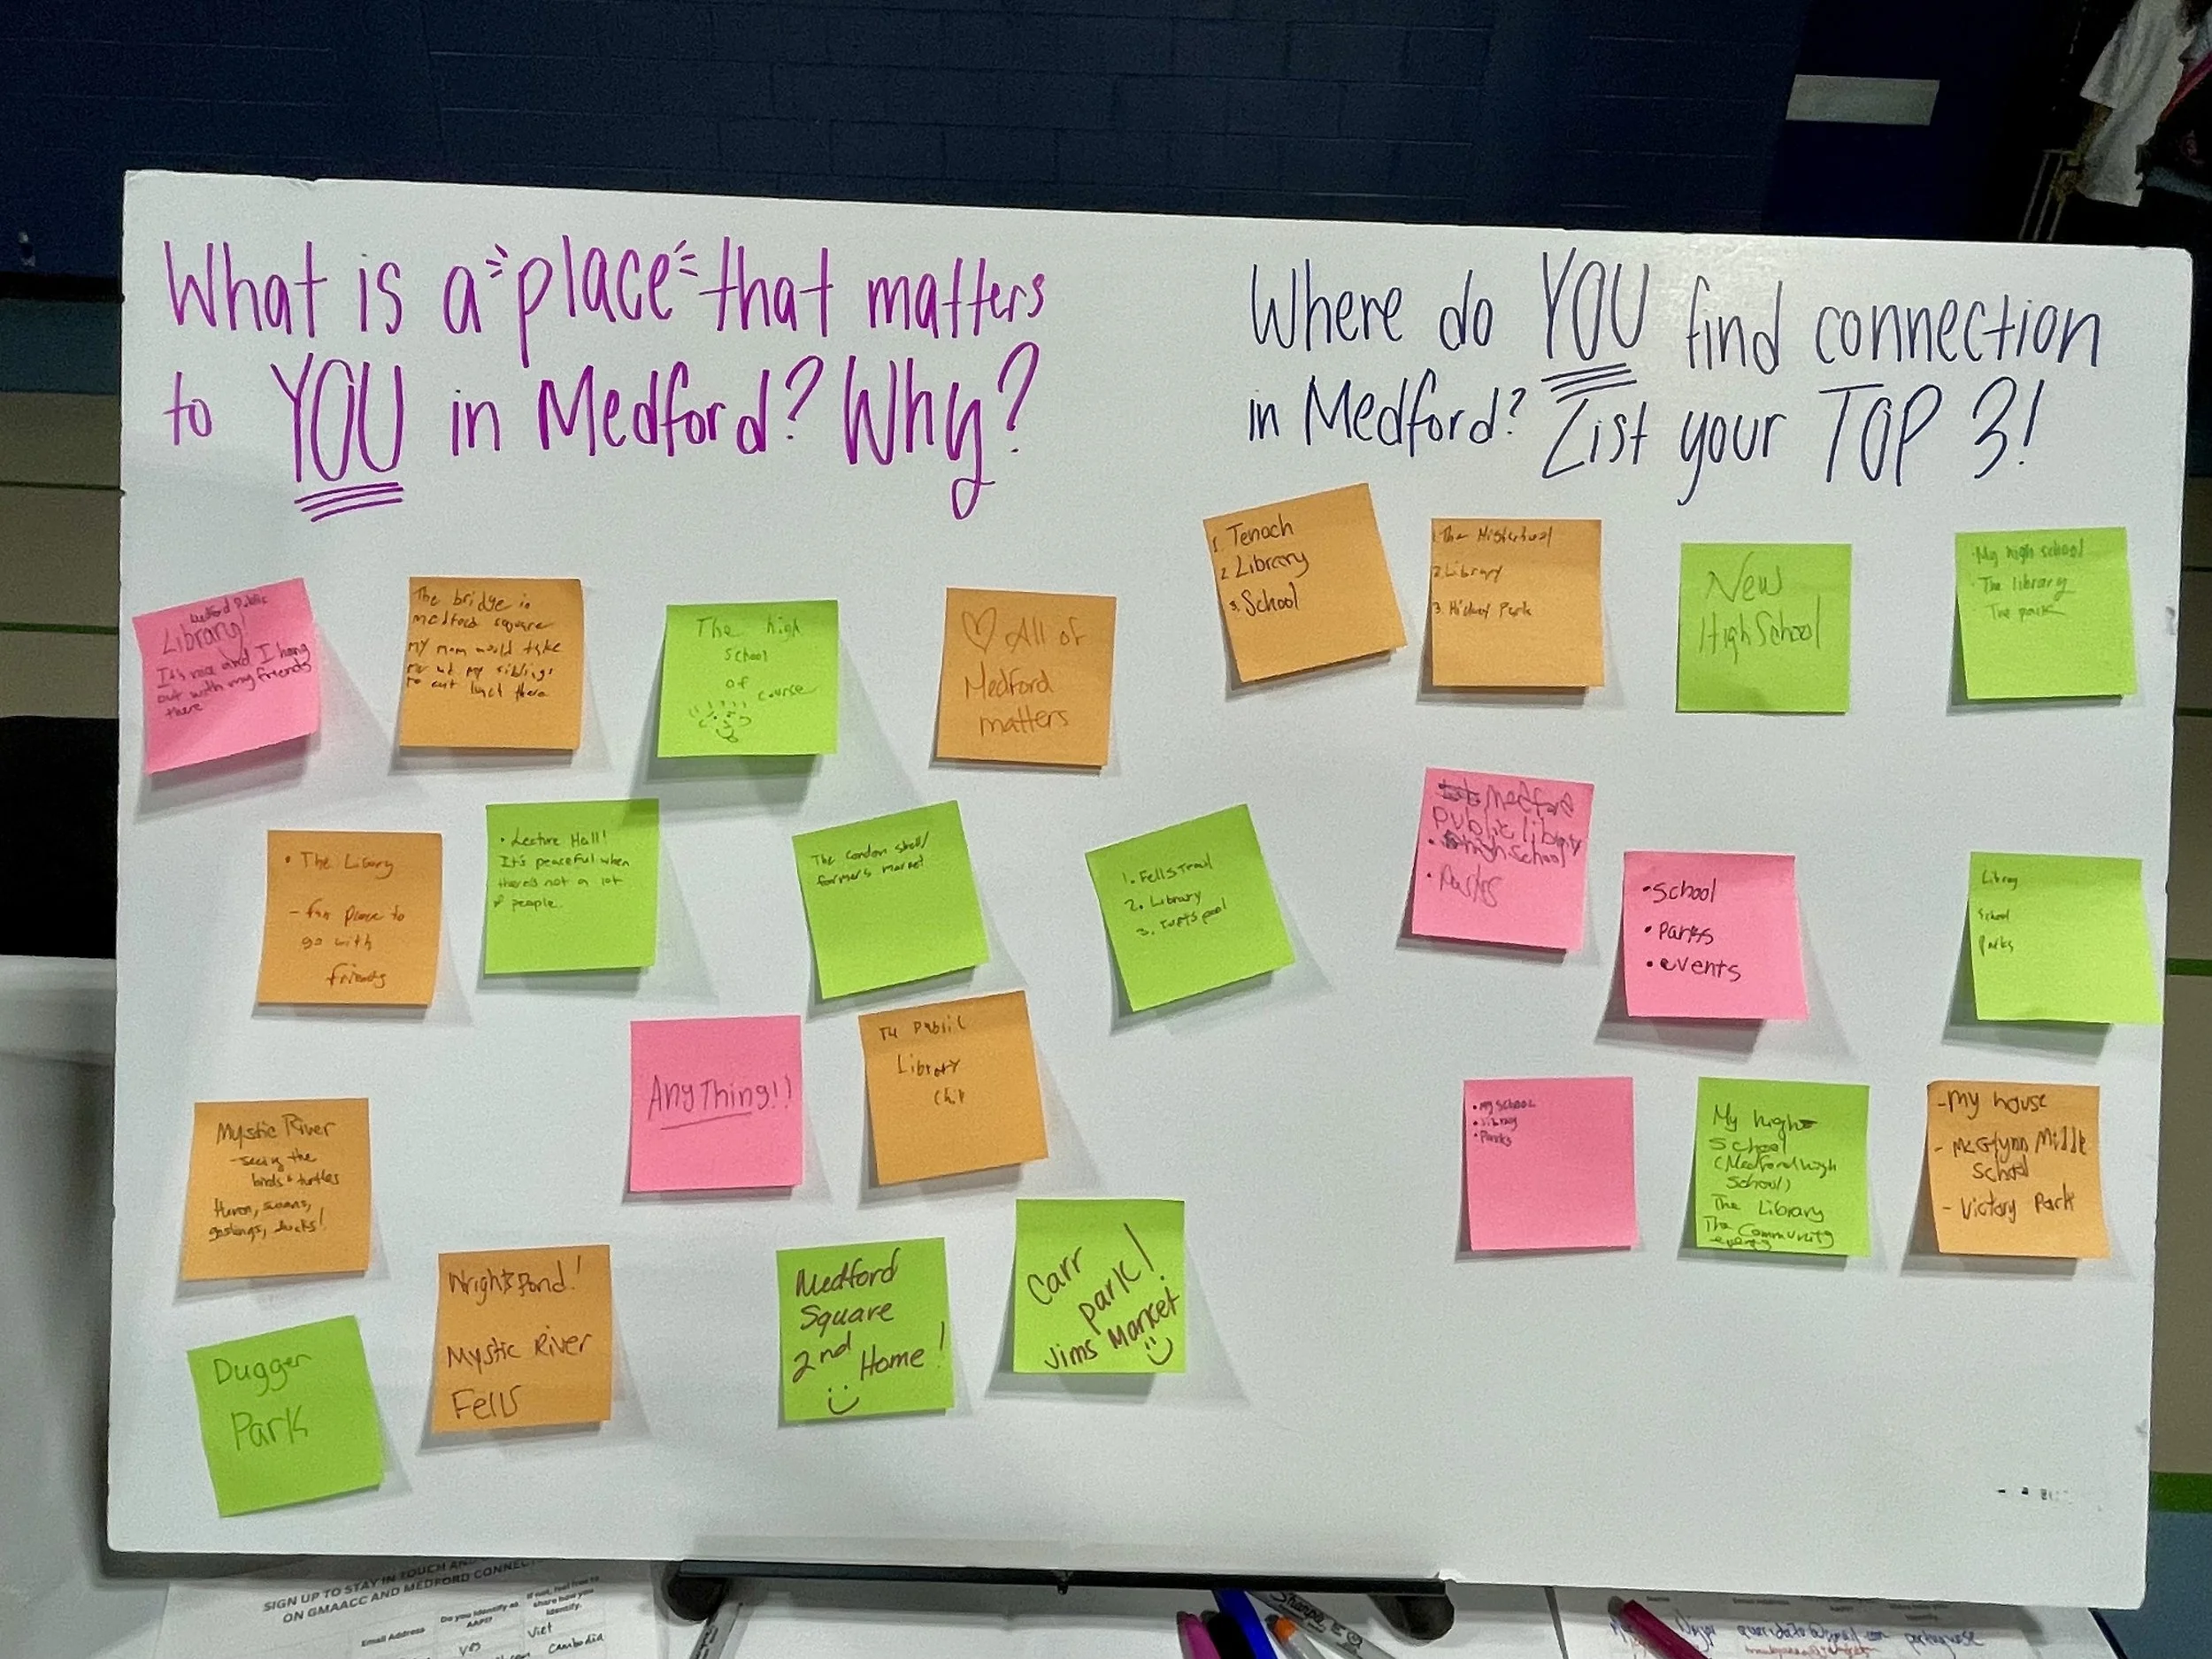 What is a "place" that matters
to YOU in Medford? Why?
Where do YOU find connection
in Medford? List your TOP 3!
Medford Public
Library!
It's nice and I hang
out with my friends
there
The bridge in
medford square
my mom would take
me and my siblings
to eat lunch there
The high
school
of
course
All of
Medford
matters
• The Libary
- fun place to
go with
friends
• Lecture Hall!
It's peaceful when
there's not a lot
of people.
The condon shell/
farmer's market
1. Fells Trail
2. Library
3. Tufts pool
Mystic River
- seeing the
birds & turtles
Heron, swans,
goslings, ducks!
AnyThing!!
Public
Library
Dugger
Park
Wright's Pond!
Mystic River
Fells
Medford
Square
2nd Home!
Carr
park!
Jims Market
1. Tenoch
2. Library
3. School
1. The
2. Library
3. Park
New
High School
• My high school
• The library
• The park
Medford
public library
• high school
• Parks
• School
• Parks
• events
Library
School
Parks
• My school
• library
• Parks
My high
school
(Medford high
school)
The Library
The Community
- my house
- McGlynn Middle
School
- Victory Park
SIGN UP TO STAY IN TOUCH AND
ON GMAACC AND MEDFORD CONNEC
Email Address
Do you identify as
AAPI?
If not, feel free to
share how you
identify.
yes
Viet
Cambodia
Sharpie
portuguese